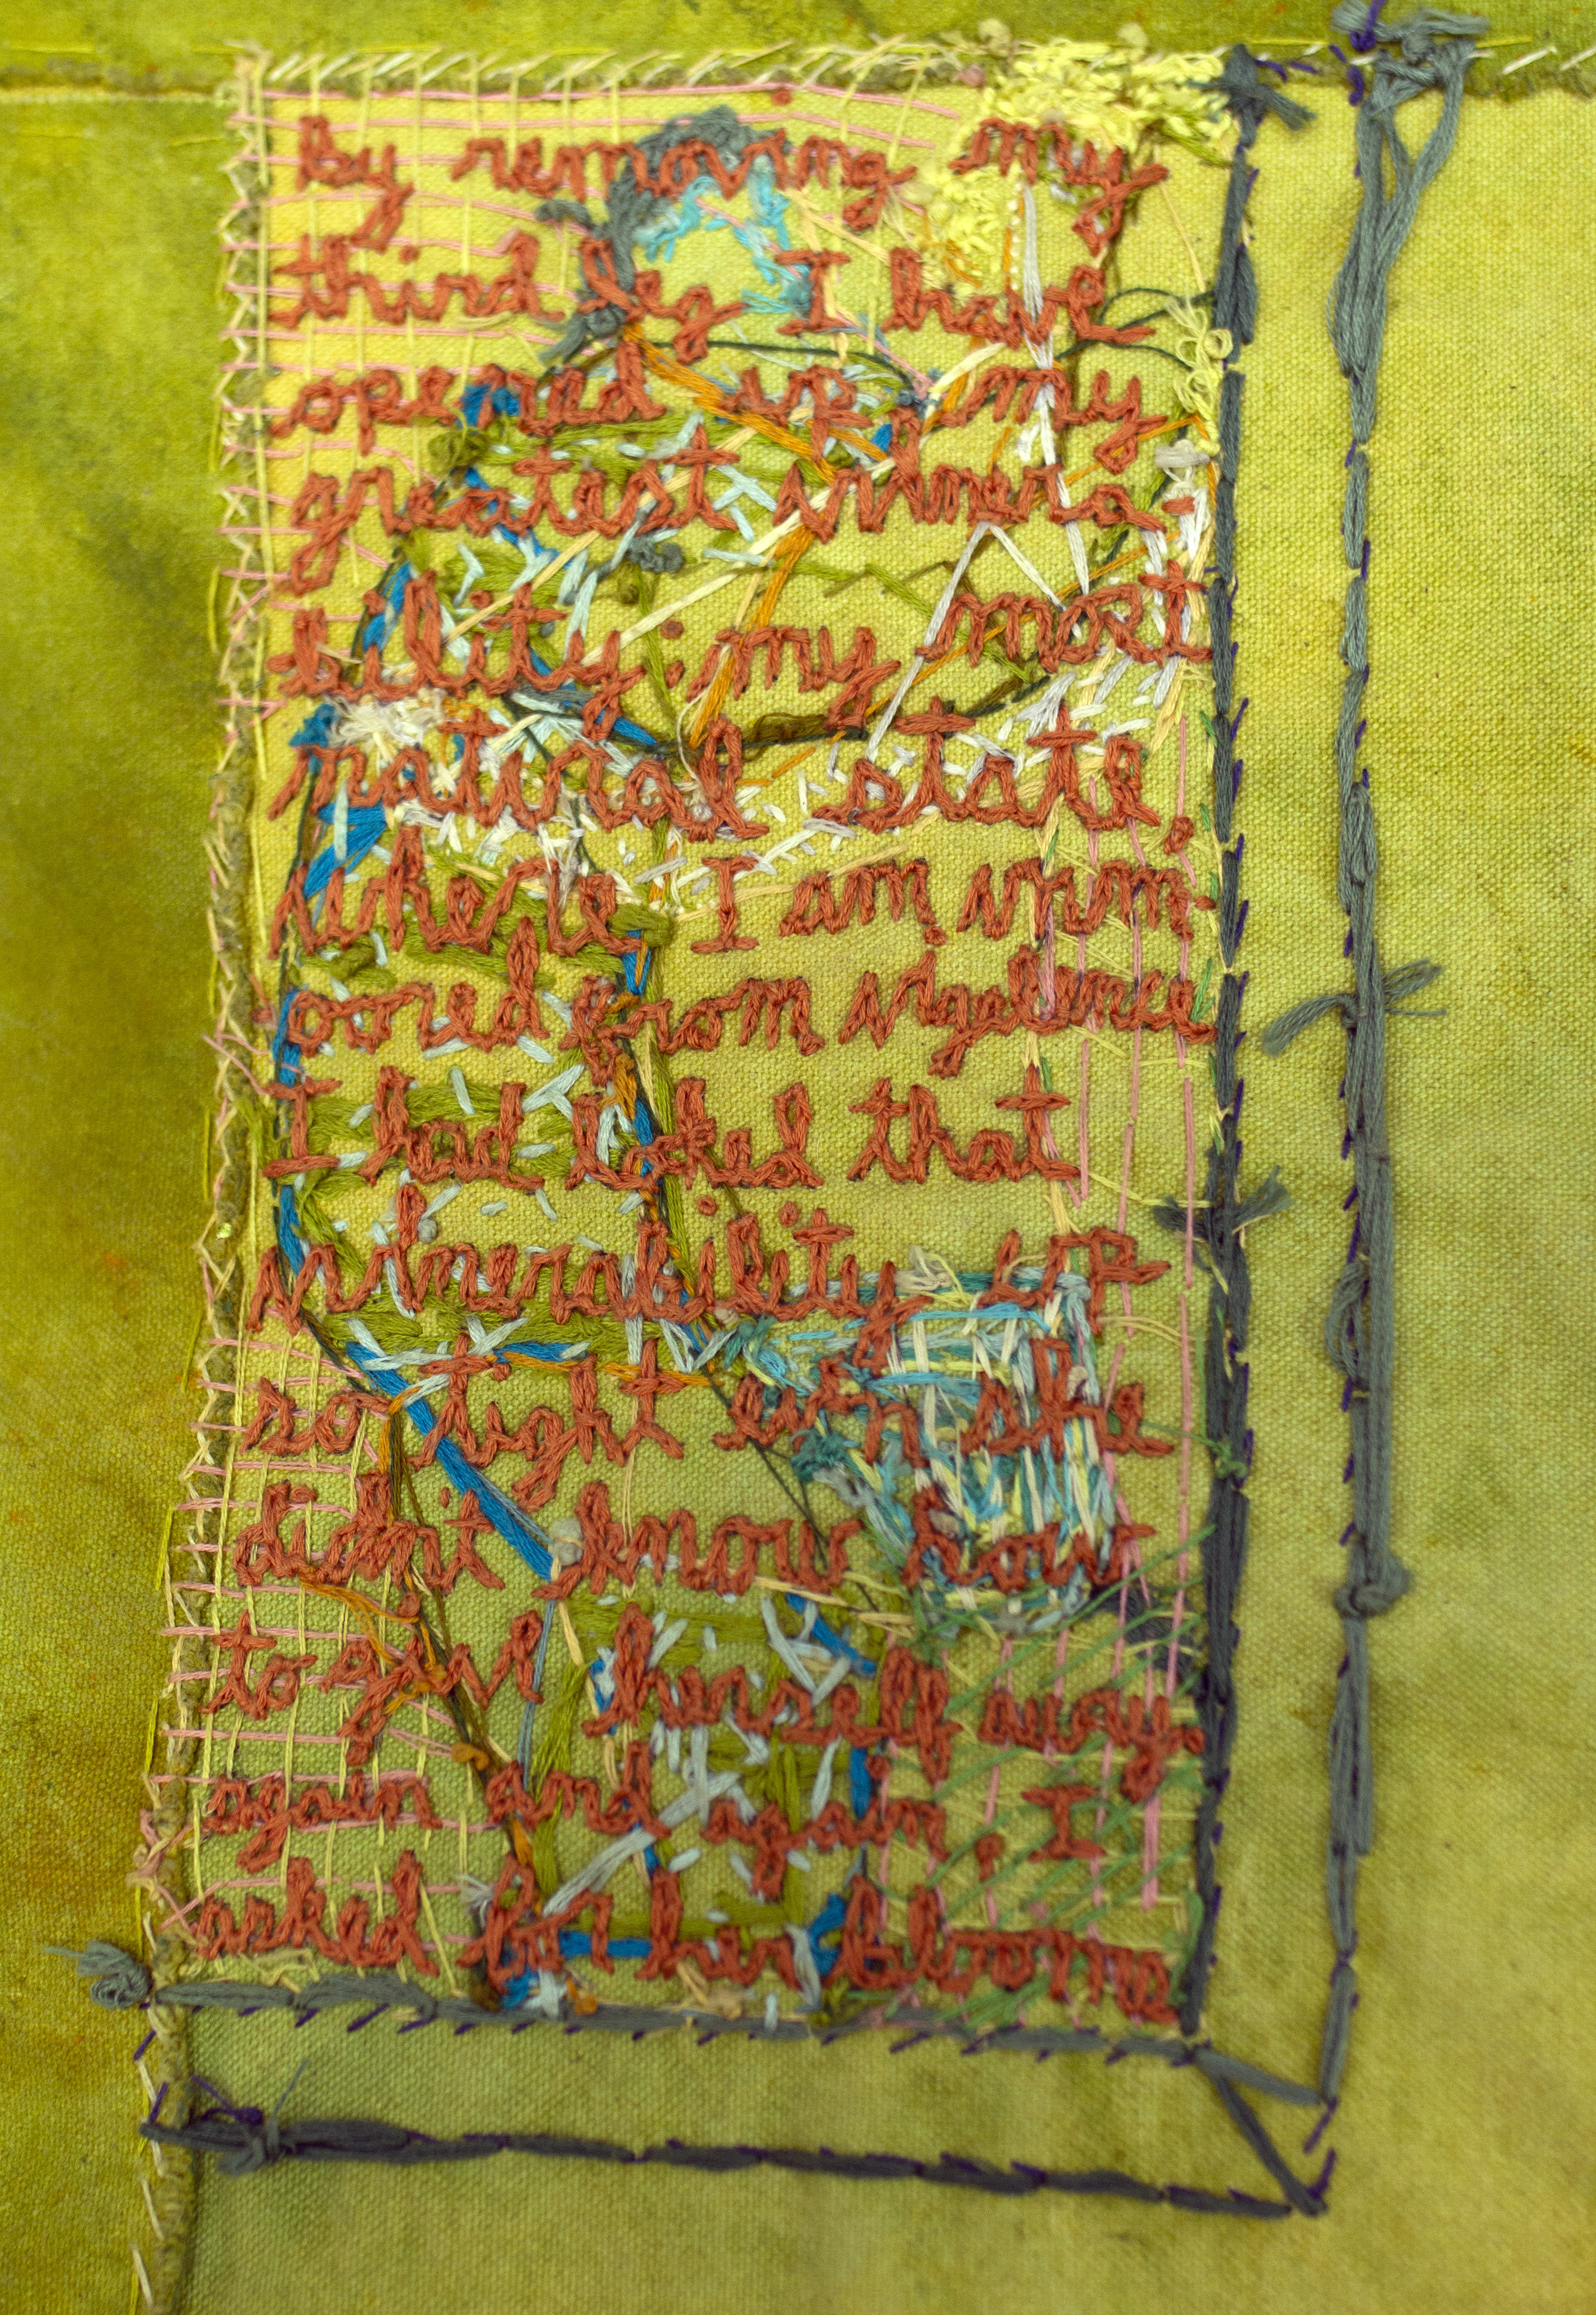 by removing my
third leg I have
opened up my
greatest vulnera-
bility: my most
natural state,
where I am unm-
oored from vigelence
I had locked that
vulnerability up
so tight even she
didn't know how
to give herself away
again and again, I
asked for her blooms